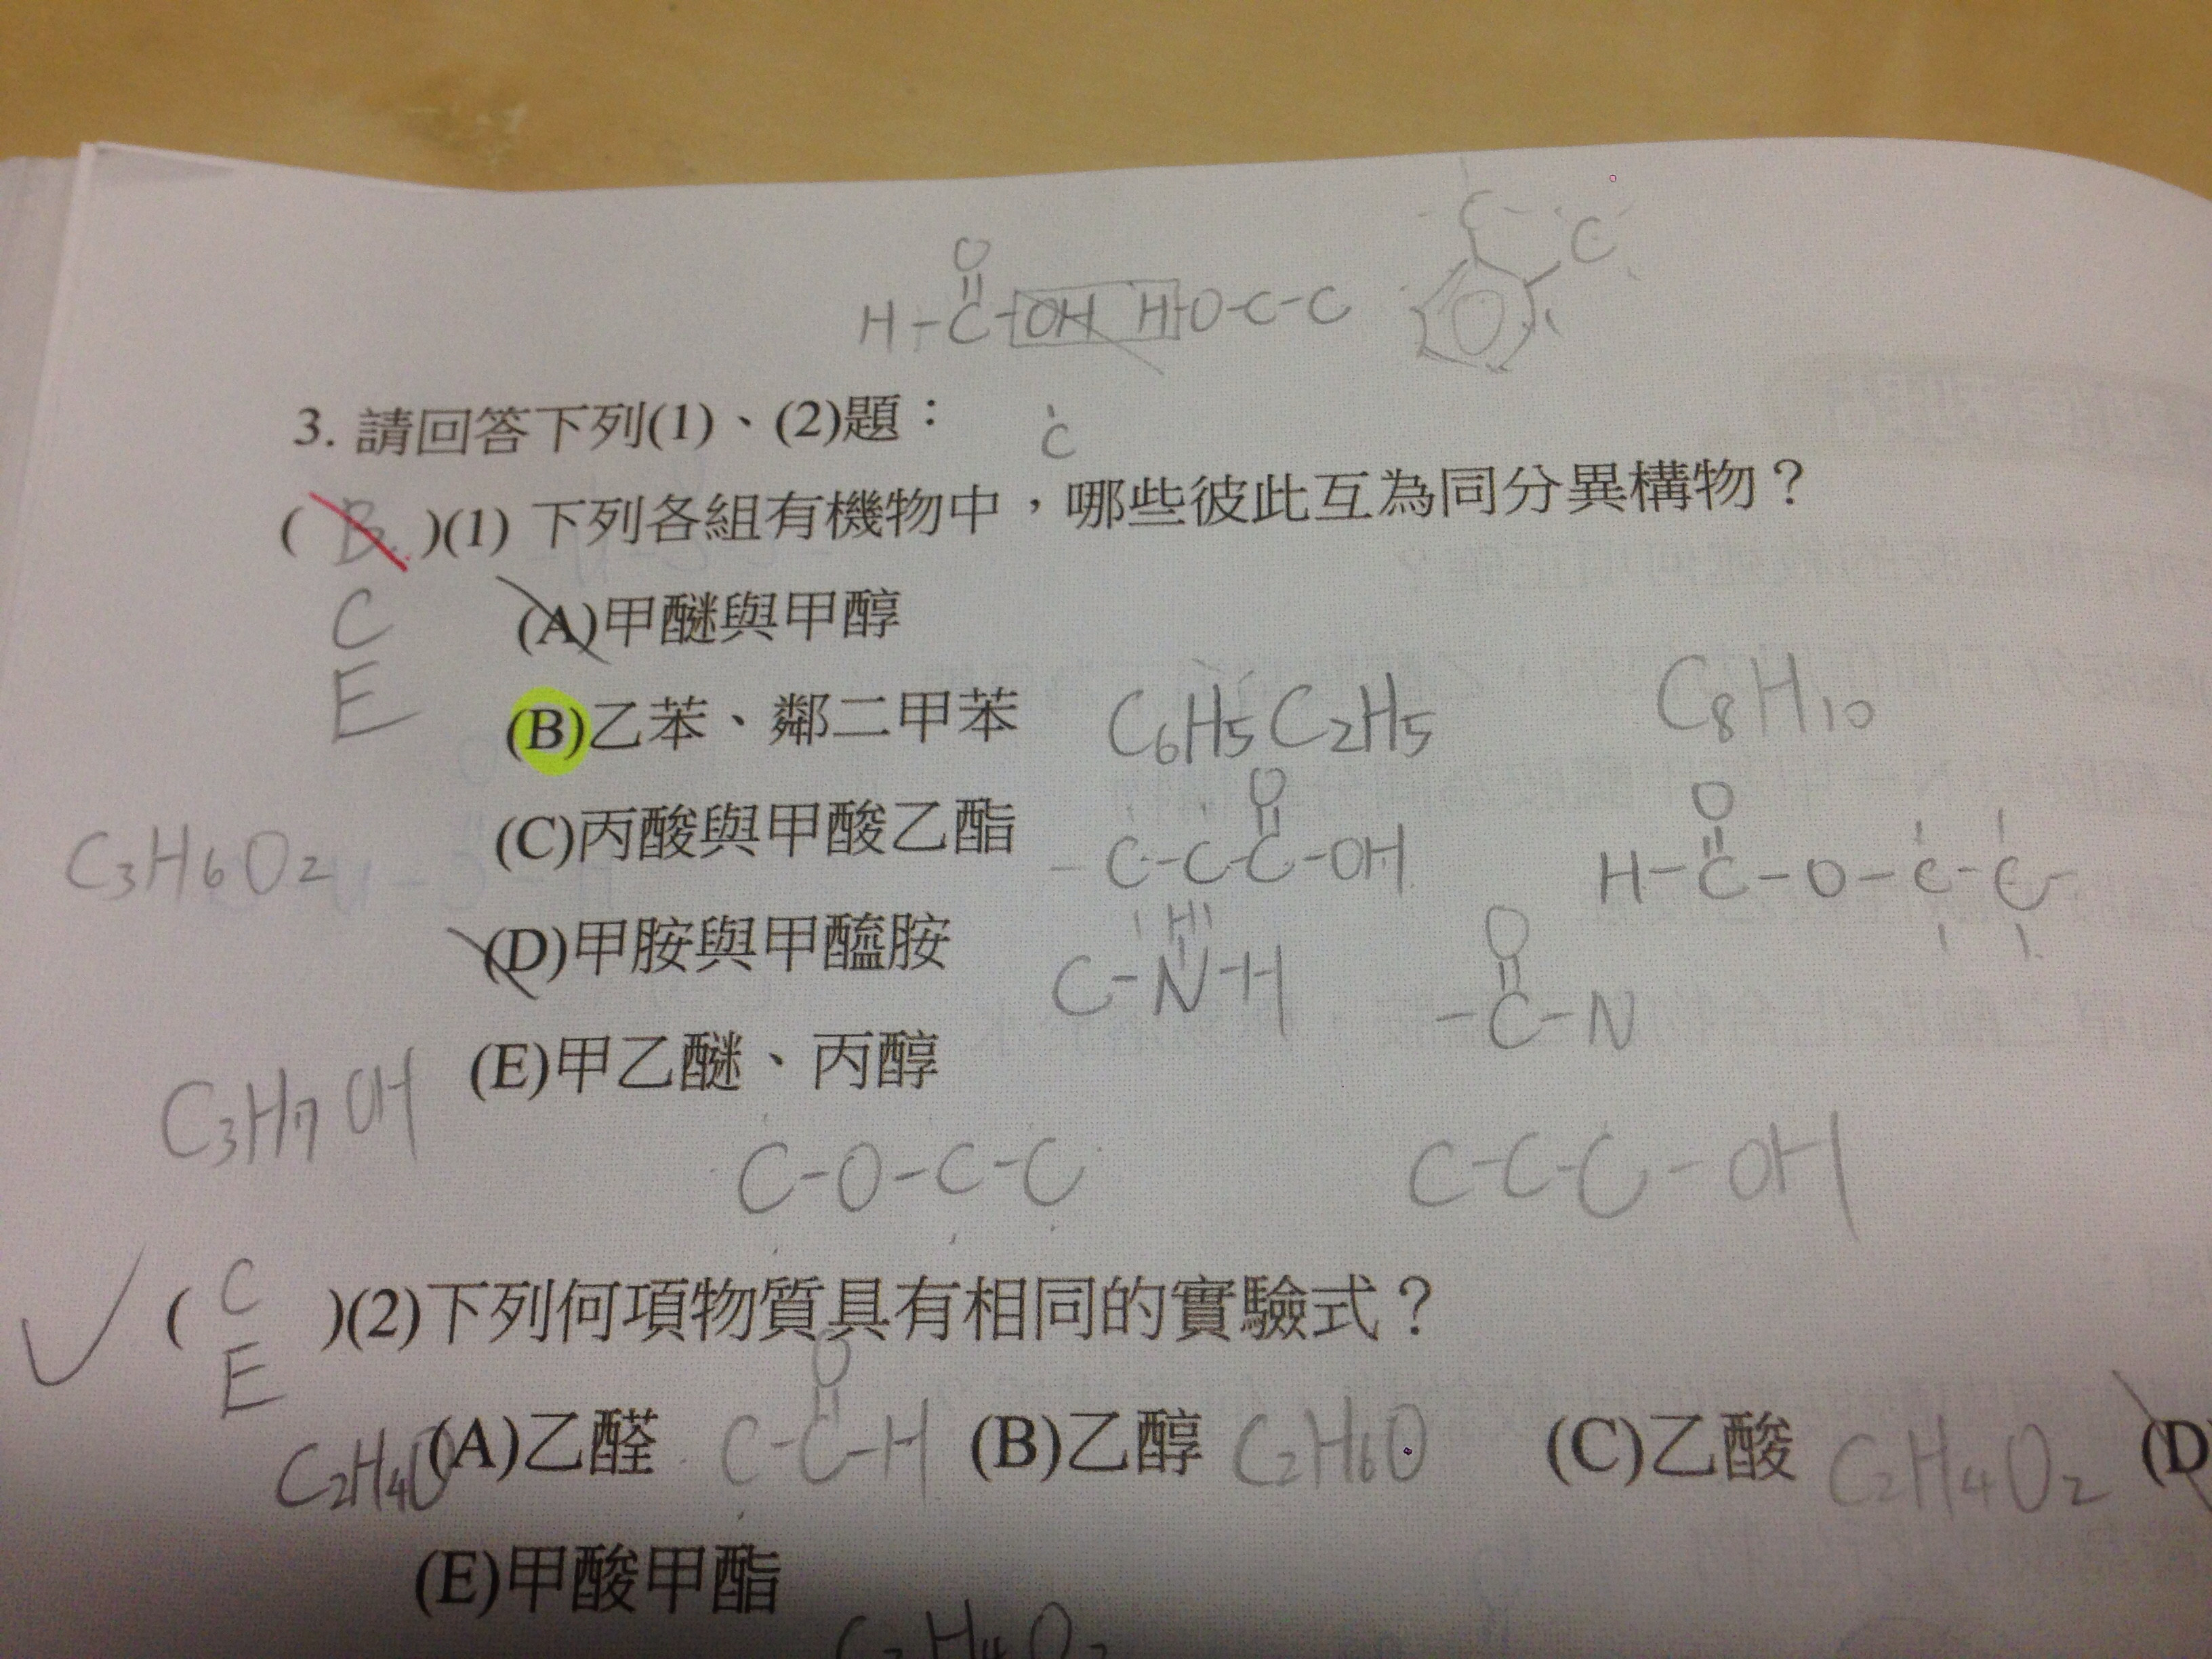 O
H-C-OH H-O-C-C
C
C
3. 請回答下列(1)、(2)題：
C
( B )(1) 下列各組有機物中，哪些彼此互為同分異構物？
C
E
(A)甲醚與甲醇
(B)乙苯、鄰二甲苯 C6H5C2H5 C8H10
(C)丙酸與甲酸乙酯
C3H6O2
O
-C-C-C-OH
O
H-C-O-C-C-
(D)甲胺與甲醯胺
H
C-N-H
O
-C-N
(E)甲乙醚、丙醇
C3H7OH
C-O-C-C C-C-C-OH
( C E )(2)下列何項物質具有相同的實驗式？
O
C2H4O (A)乙醛 C-C-H (B)乙醇 C2H6O (C)乙酸 C2H4O2 (D
(E)甲酸甲酯
C2H4O2